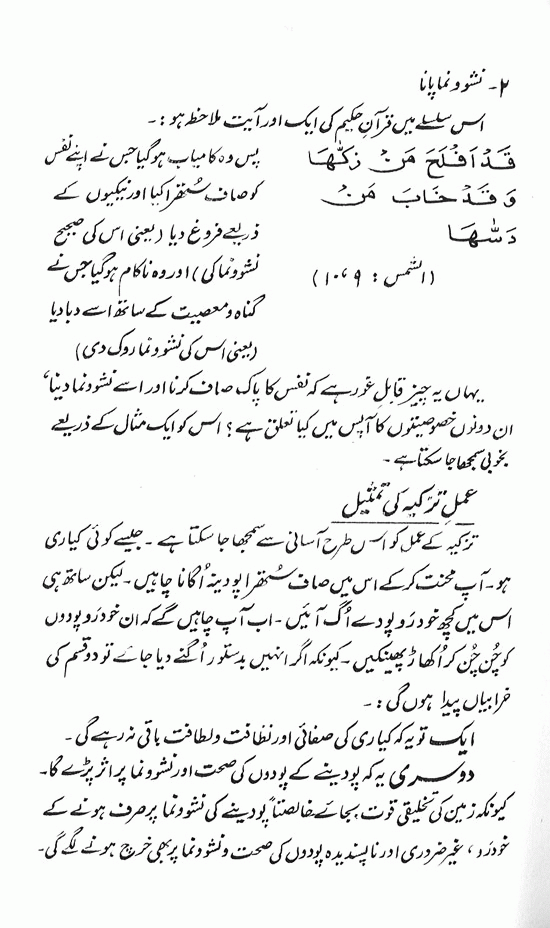 ۲- نشوونما پانا
اس سلسلے میں قرآنِ حکیم کی ایک اور آیت ملاحظہ ہو :-
قَدْ اَفْلَحَ مَنْ زَكّٰىهَا
وَ قَدْ خَابَ مَنْ
دَسّٰىهَا
(الشمس : ۹ ، ۱۰)
پس وہ کامیاب ہوگیا جس نے اپنے نفس
کو صاف ستھرا کیا اور نیکیوں کے
ذریعے فروغ دیا (یعنی اس کی صحیح
نشوونما کی) اور وہ ناکام ہوگیا جس نے
گناہ و معصیت کے ساتھ اسے دبا دیا
(یعنی اس کی نشوونما روک دی)
یہاں یہ چیز قابلِ غور ہے کہ نفس کا پاک صاف کرنا اور اسے نشوونما دینا ،
ان دونوں خصوصیتوں کا آپس میں کیا تعلق ہے ؟ اس کو ایک مثال کے ذریعے
بخوبی سمجھا جا سکتا ہے -
عملِ تزکیہ کی تمثیل
تزکیہ کے عمل کو اس طرح آسانی سے سمجھا جا سکتا ہے - جیسے کوئی کیاری
ہو - آپ محنت کر کے اس میں صاف ستھرا پودینہ اُگانا چاہیں - لیکن ساتھ ہی
اس میں کچھ خودرَو پودے اُگ آئیں - اب آپ چاہیں گے کہ ان خودرَو پودوں
کو چُن چُن کر اُکھاڑ پھینکیں - کیونکہ اگر انہیں بدستور اُگنے دیا جائے تو دو قسم کی
خرابیاں پیدا ہوں گی : -
ایک تو یہ کہ کیاری کی صفائی اور نظافت و لطافت باقی نہ رہے گی -
دوسری یہ کہ پودینے کے پودوں کی صحت اور نشوونما پر اثر پڑے گا -
کیونکہ زمین کی تخلیقی قوت بجائے خالصتاً پودینے کی نشوونما پر صرف ہونے کے
خودرَو ، غیر ضروری اور ناپسندیدہ پودوں کی صحت و نشوونما پر بھی خرچ ہونے لگے گی -